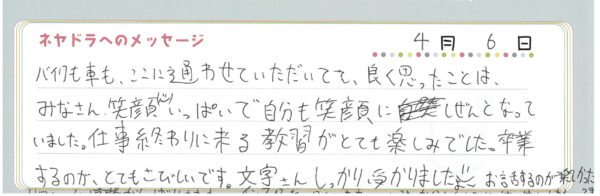 ネヤドラへのメッセージ
4月 6日
バイクも車も、ここに通わせていただいてて、良く思ったことは、
みなさん、笑顔いっぱいで自分も笑顔にしぜんとなって
いました。仕事終わりに来る教習がとても楽しみでした。卒業
するのが、とてもさびしいです。文字さんしっかり受かりました
お話するのが